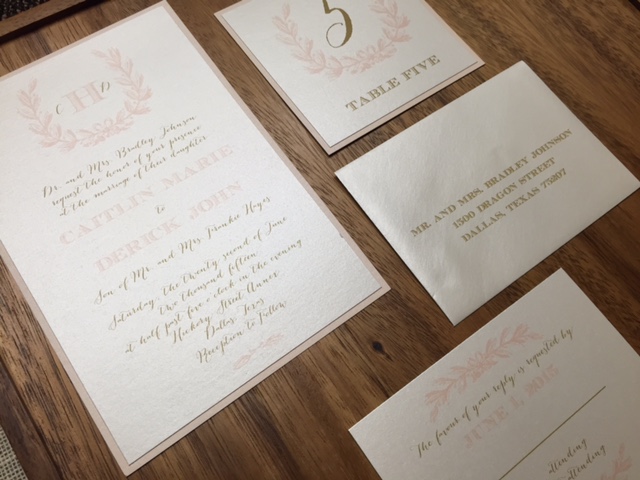 C H D
Dr. and Mrs. Bradley Johnson
request the honor of your presence
at the marriage of their daughter
CAITLIN MARIE
to
DERICK JOHN
Son of Mr. and Mrs. Frankie Hayes
Saturday, the twenty second of June
two thousand fifteen
at half past five o'clock in the evening
Hickory Street Annex
Dallas, Texas
Reception to Follow
5
TABLE FIVE
MR. AND MRS. BRADLEY JOHNSON
1500 DRAGON STREET
DALLAS, TEXAS 75207
The favour of your reply is requested by
JUNE 2015
attending
attending